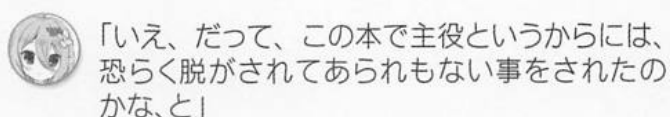 「いえ、だって、この本で主役というからには、
恐らく脱がされてあられもない事をされたの
かな、と」